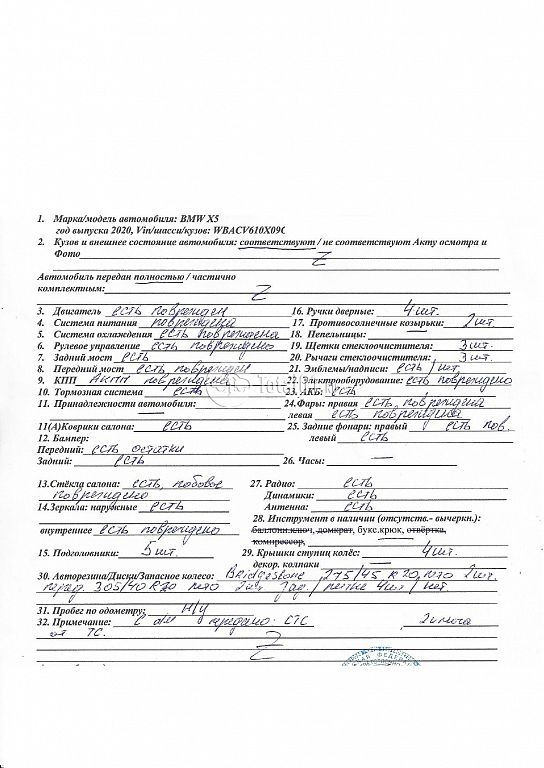 1. Марка/модель автомобиля: BMW X5
год выпуска 2020, Vin/шасси/кузов: WBACV610X09C
2. Кузов и внешнее состояние автомобиля: соответствуют / не соответствуют Акту осмотра и
Фото Z
Автомобиль передан полностью / частично
комплектным: Z
3. Двигатель есть поврежден 16. Ручки дверные: 4 шт.
4. Система питания повреждена 17. Противосолнечные козырьки: 2 шт.
5. Система охлаждения есть повреждена 18. Пепельницы:
6. Рулевое управление есть повреждено 19. Щетки стеклоочистителя: 3 шт.
7. Задний мост есть 20. Рычаги стеклоочистителя: 3 шт.
8. Передний мост есть, поврежден 21. Эмблемы/надписи: есть / шт.
9. КПП АКПП повреждено 22. Электрооборудование: есть повреждено
10. Тормозная система есть 23. АКБ: есть
11. Принадлежности автомобиля: 24. Фары: правая есть, повреждена
левая есть повреждена
11(А)Коврики салона: есть 25. Задние фонари: правый есть пов.
12. Бампер: левый есть
Передний: есть остатки
Задний: есть 26. Часы: —
13. Стёкла салона: есть, лобовое 27. Радио: есть
повреждено Динамики: есть
14. Зеркала: наружные есть Антенна: есть
28. Инструмент в наличии (отсутств.- вычеркн.):
внутреннее есть повреждено баллонн.ключ, домкрат, букс.крюк, отвёртка,
компрессор,
15. Подголовники: 5 шт. 29. Крышки ступиц колёс: 4 шт.
декор. колпаки
30. Авторезина/Диски/Запасное колесо: Bridgestone, 275/45 R20, лето 2 шт.
перед. 305/40 R20 лето 2 шт. зад. / литые 4 шт / нет
31. Пробег по одометру: Н/У
32. Примечание: С а/м передано: СТС, 2 ключа
от ТС.
Z